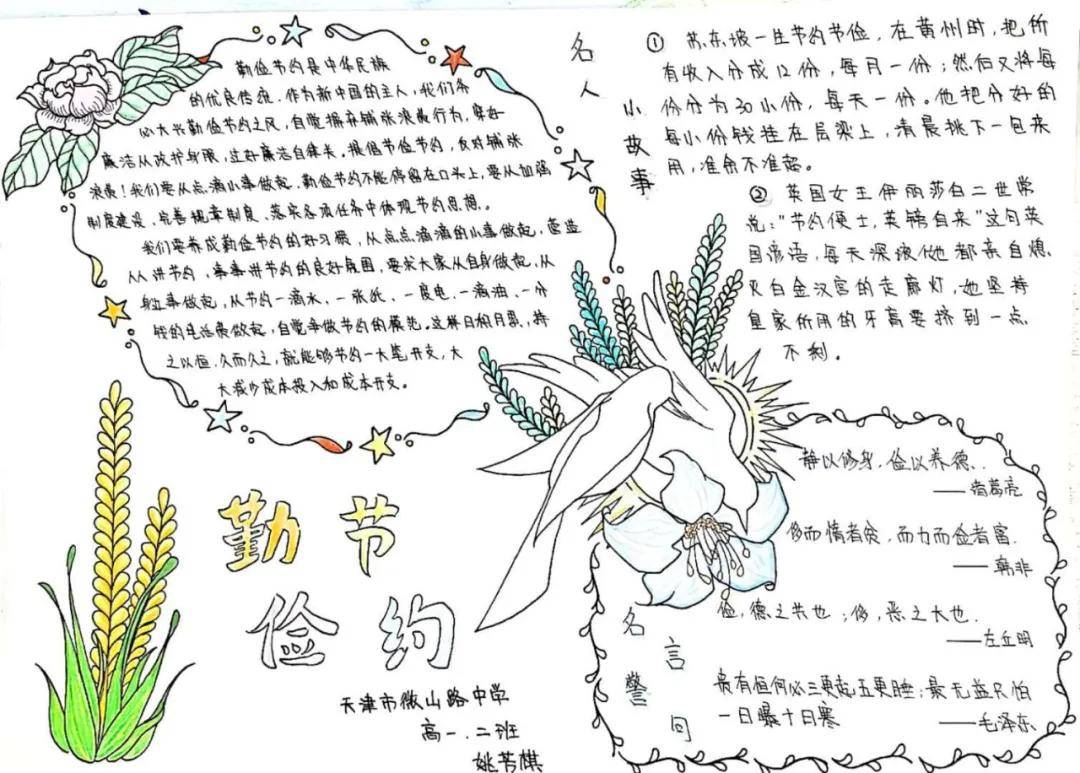 勤俭节约是中华民族
的优良传统．作为新中国的主人，我们务
必大兴勤俭节约之风，自觉摒弃铺张浪费行为，穿好
廉洁从政护身服，过好廉洁自律关。提倡节俭节约，反对铺张
浪费！我们要从点滴小事做起．勤俭节约不能停留在口头上，要从加强
制度建设、完善规章制度、落实各项任务中体现节约思想．。
我们要养成勤俭节约的好习惯，从点点滴滴的小事做起，营造
人人讲节约，事事讲节约的良好氛围，要求大家从自身做起，从
身边事做起，从节约一滴水、一张纸、一度电、一滴油、一分
钱的生活费做起，自觉争做节约的模范。这样日积月累，持
之以恒．久而久之，就能够节约一大笔开支，大
大减少成本投入和成本开支。
名人小故事
① 苏东坡一生节约节俭，在黄州时，把所
有收入分成12份，每月一份；然后又将每
份分为30小份，每天一份。他把分好的
每小份钱挂在房梁上，清晨挑下一包来
用，准余不准超。
② 英国女王伊丽莎白二世常
说："节约便士，英镑自来"这句英
国谚语，每天深夜她都亲自熄
灭白金汉宫的走廊灯，她坚持
皇家所用的牙膏要挤到一点
不剩。
勤节
俭约
天津市微山路中学
高一．二班
姚芳棋
名言警句
静以修身，俭以养德．．
——诸葛亮
侈而惰者贫，而力而俭者富．
——韩非
俭，德之共也；侈，恶之大也．
——左丘明
贵有恒何必三更起五更睡；最无益只怕
一日曝十日寒
——毛泽东